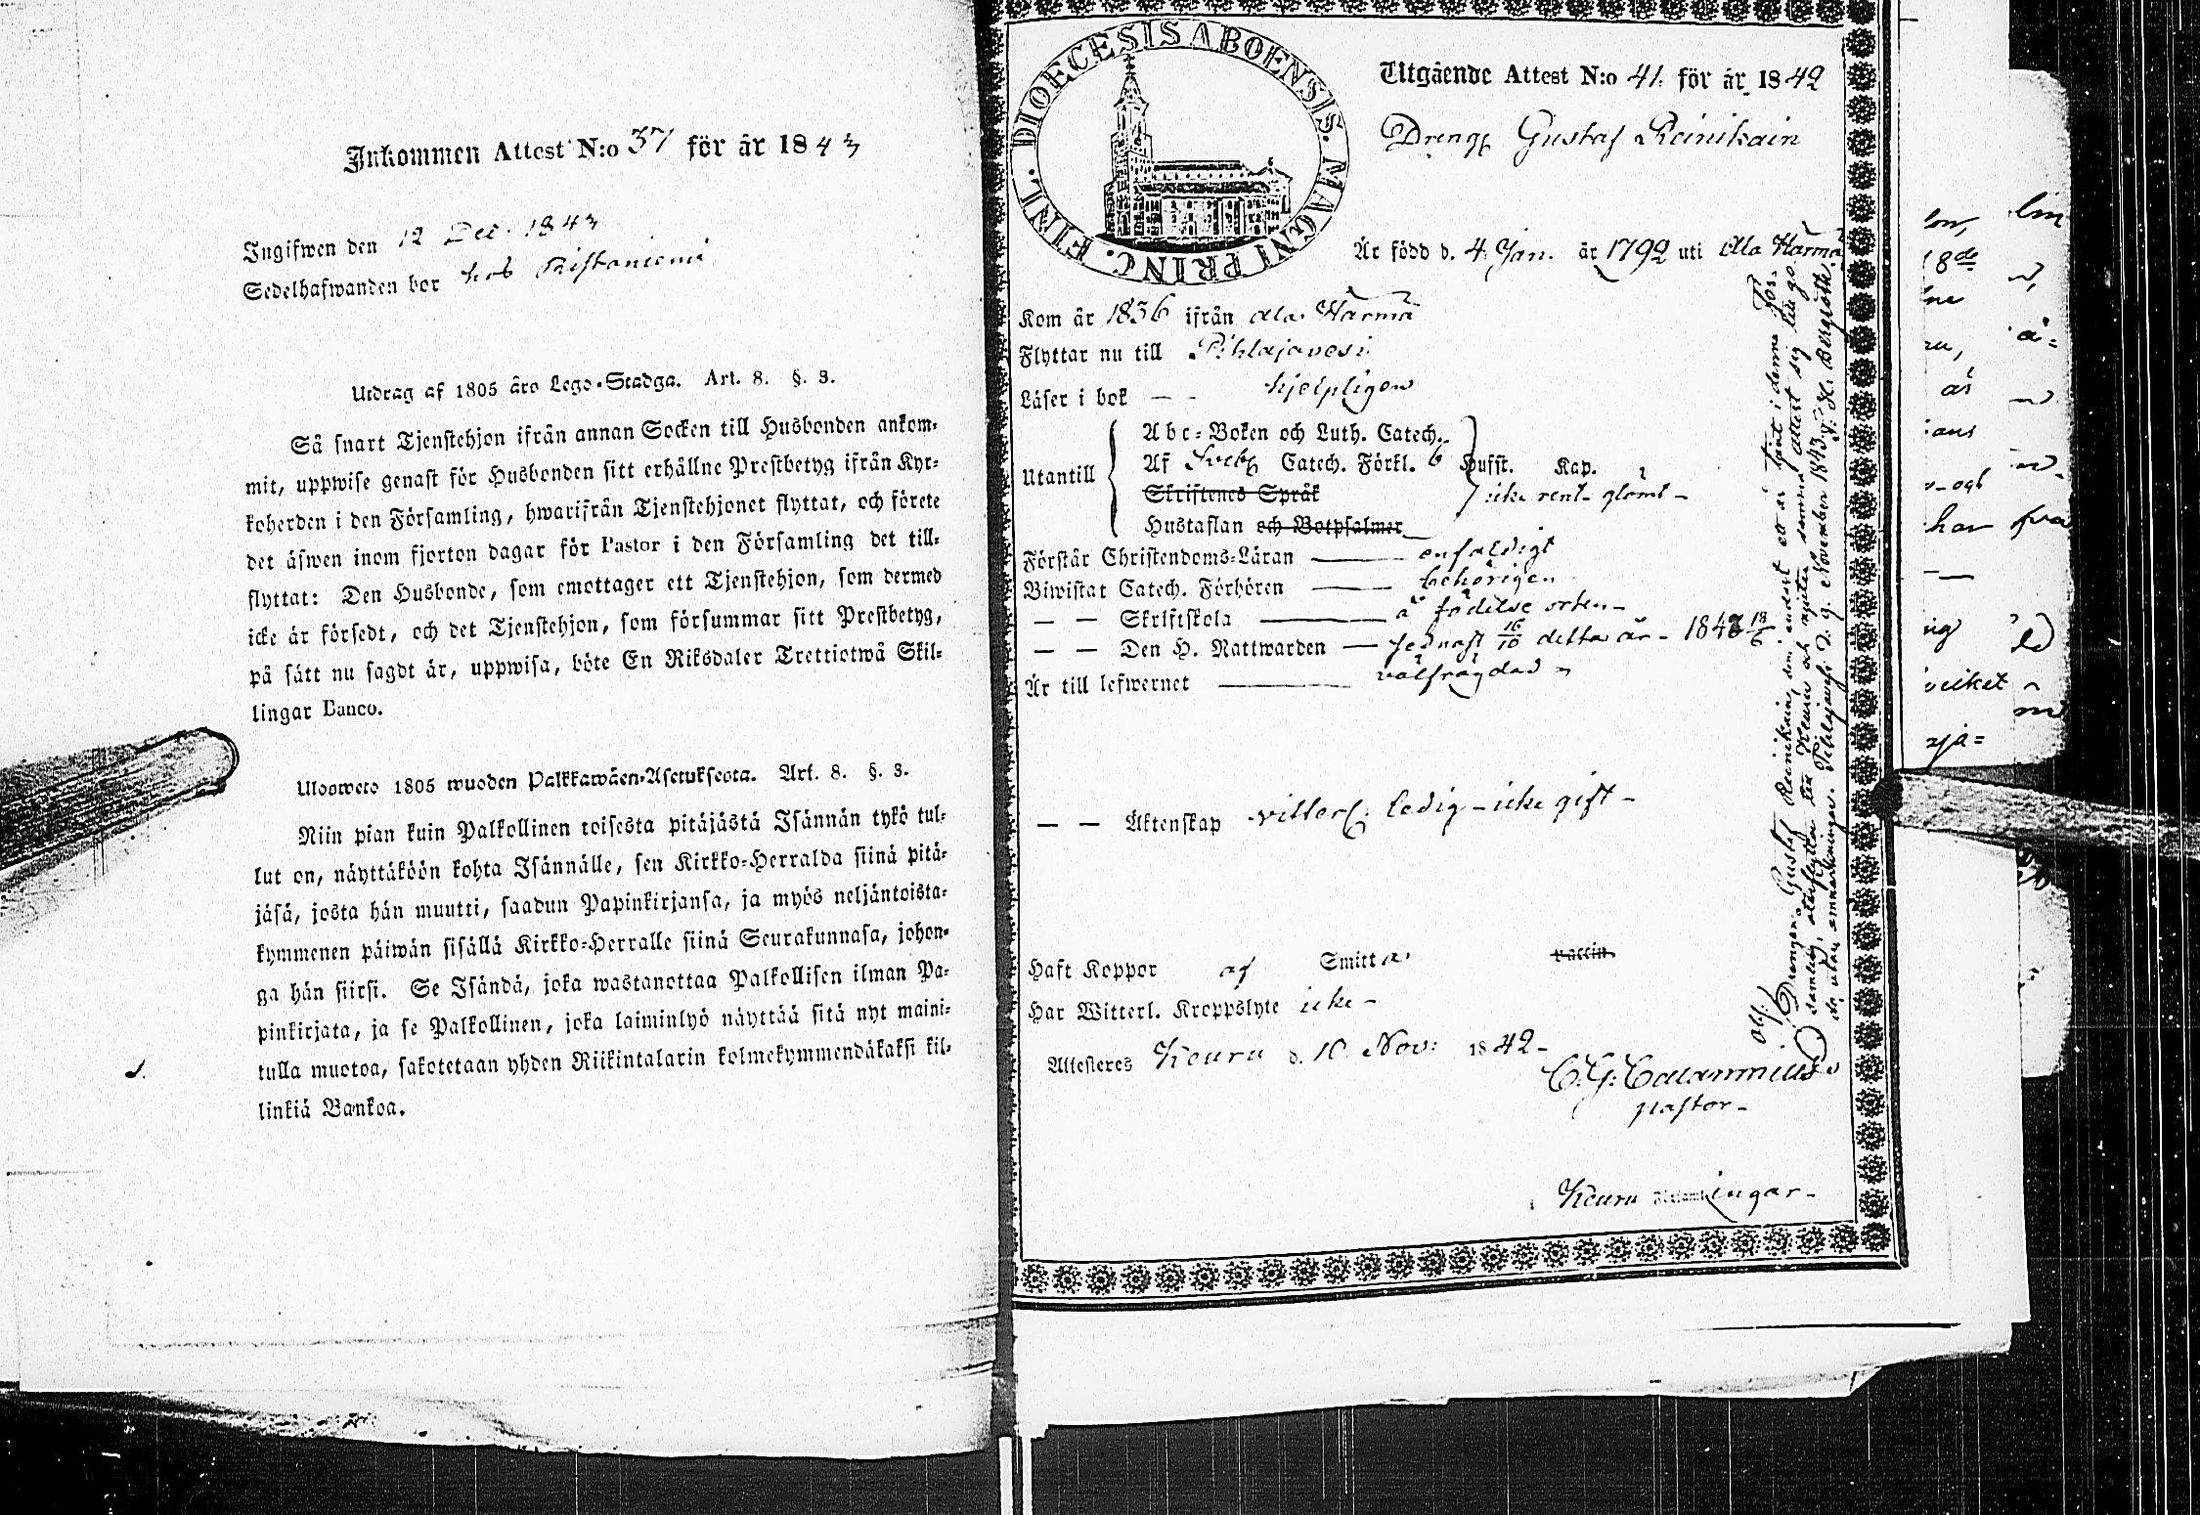 Inkommen Attest N:o 37 för år 1843
Ingifwen den 12 Dec. 1843
Sedelhafwanden bor hos Ristaniemi
Utdrag af 1805 års Lego-Stadga. Art. 8. §. 3.
Så snart Tjenstehjon ifrån annan Socken till Husbonden ankom-
mit, uppwise genast för Husbonden sitt erhållne Prestbetyg ifrån Kyr-
koherden i den Församling, hwarifrån Tjenstehjonet flyttat, och förete
det äfwen inom fjorton dagar för Pastor i den Församling det till-
flyttat: Den Husbonde, som emottager ett Tjenstehjon, som dermed
icke är försedt, och det Tjenstehjon, som försummar sitt Prestbetyg,
på sätt nu sagdt är, uppwisa, böte En Riksdaler Trettiotwå Skil-
lingar Banco.
Ulosweto 1805 wuoden Palkkawäen-Asetuksesta. Art. 8. §. 3.
Niin pian kuin Palkollinen toisesta pitäjästä Isännän tykö tul-
lut on, näyttäköön kohta Isännälle, sen Kirkko-Herralda siinä pitä-
jäsä, josta hän muutti, saadun Papinkirjansa, ja myös neljäntoista-
kymmenen päiwän sisällä Kirkko-Herralle siinä Seurakunnasa, johon-
ga hän siirsi. Se Isändä, joka wastanottaa Palkollisen ilman Pa-
pinkirjata, ja se Palkollinen, joka laiminlyö näyttää sitä nyt maini-
tulla muotoa, sakotetaan yhden Riikintalarin kolmekymmendäkaksi kil-
linkiä Bankoa.
FINL. DIOECESIS ABOENSIS. MAGNI PRINC.
Utgående Attest N:o 41. för år 1842
Dreng Gustaf Reinikain
Är född d. 4. Jan. år 1792 uti Ala Härmä
Kom år 1836 ifrån Ala Härmä
Flyttar nu till Pihlajavesi
Läser i bok — - hjelpligen
Utantill
Abc-Boken och Luth. Catech.
Af Sveb. Catech. Förkl. 6 Hufst. Kap.
Skriftenes Språk icke rent glömt -
Hustaflan och Botpsalmer
Förstår Christendoms-Läran — enfaldigt
Biwistat Catech. Förhören — behörigen
— — Skriftskola — å födelse orten -
— — Den H. Nattwarden — sednast 16/10 detta år - 1843 18/6
Är till lefwernet — välfrägdad
— — Äktenskap vitterl. ledig - icke gift -
Haft Koppor af Smitta. vaccin.
Har Witterl. Kroppslyte icke -
Attesteres Keuru d. 10. Nov: 1842 -
C. G. Calamnius
pastor -
Keuru
Drängen Gustaf Reinikain, som endast ett år tjent i denna För-
samling, återflyttar till Keuru och njuter samma attest sig till go-
do, utan anmärkningar. Pihlajavesi d. 9. November 1843. J. H. Bergroth.